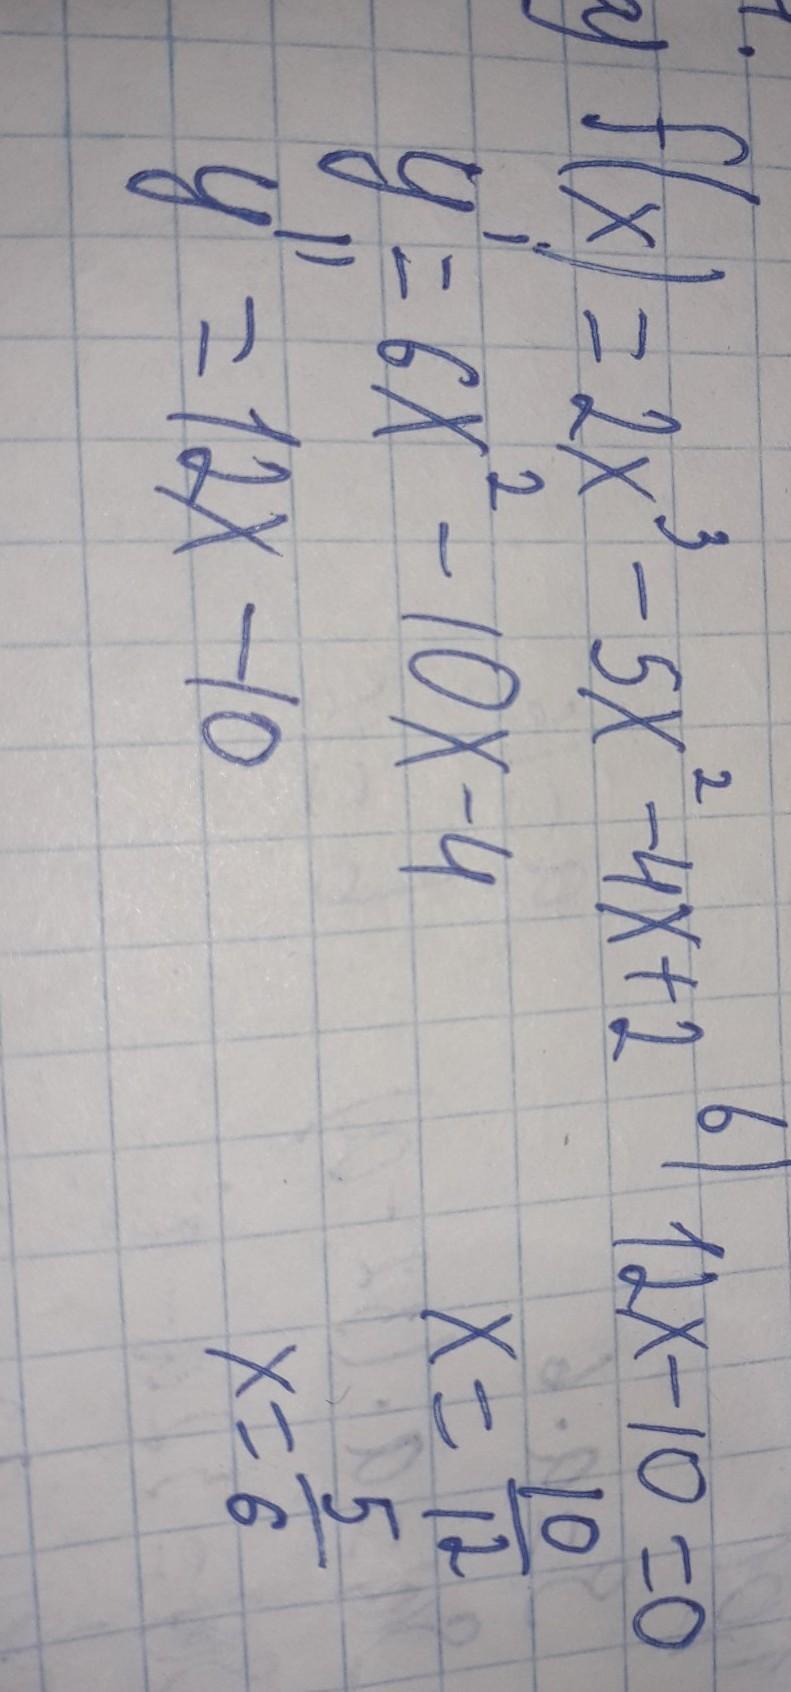 1.
a) f(x) = 2x³ - 5x² - 4x + 2
y' = 6x² - 10x - 4
y'' = 12x - 10
b) 12x - 10 = 0
x = 10/12
x = 5/6